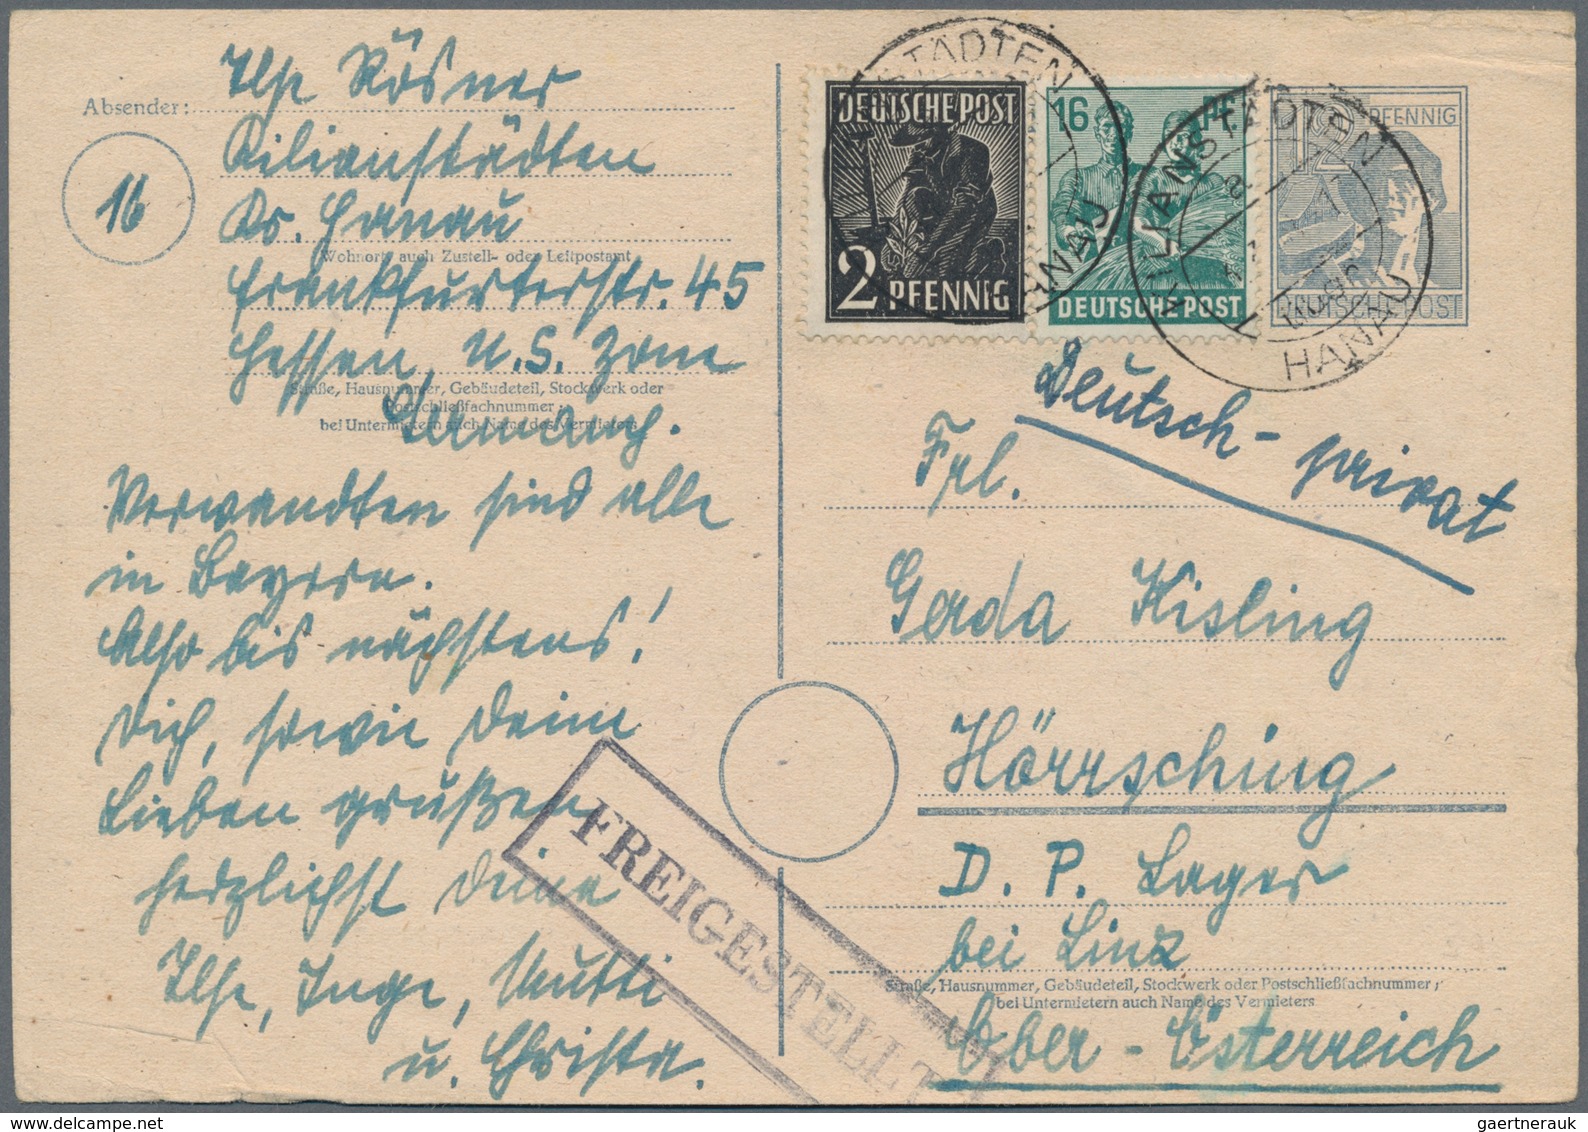 Absender:
Ilse Rösner
Kilianstädten
16
Kr. Hanau
Wohnort, auch Zustell- oder Leitpostamt
Frankfurterstr. 45
Hessen, U.S. Zone
Straße, Hausnummer, Gebäudeteil, Stockwerk oder
Postschließfachnummer;
bei Untermietern auch Name des Vermieters
Germany.
Verwandten sind alle
in Bayern.
Also bis nächstens!
Dich, sowie Deine
Lieben grüßen
herzlichst Deine
Ilse, Inge, Mutti
u. Christa.
FREIGESTELLT
DEUTSCHE POST
2 PFENNIG
16
DEUTSCHE POST
12 PFENNIG
DEUTSCHE POST
KILIANSTÄDTEN
HANAU
KILIANSTÄDTEN
HANAU
Deutsch - privat
Frl.
Gerda Kisling
Hörrsching
D. P. Lager
bei Linz
Straße, Hausnummer, Gebäudeteil, Stockwerk oder Postschließfachnummer;
bei Untermietern auch Name des Vermieters
Ober - Österreich
gaertnerauk